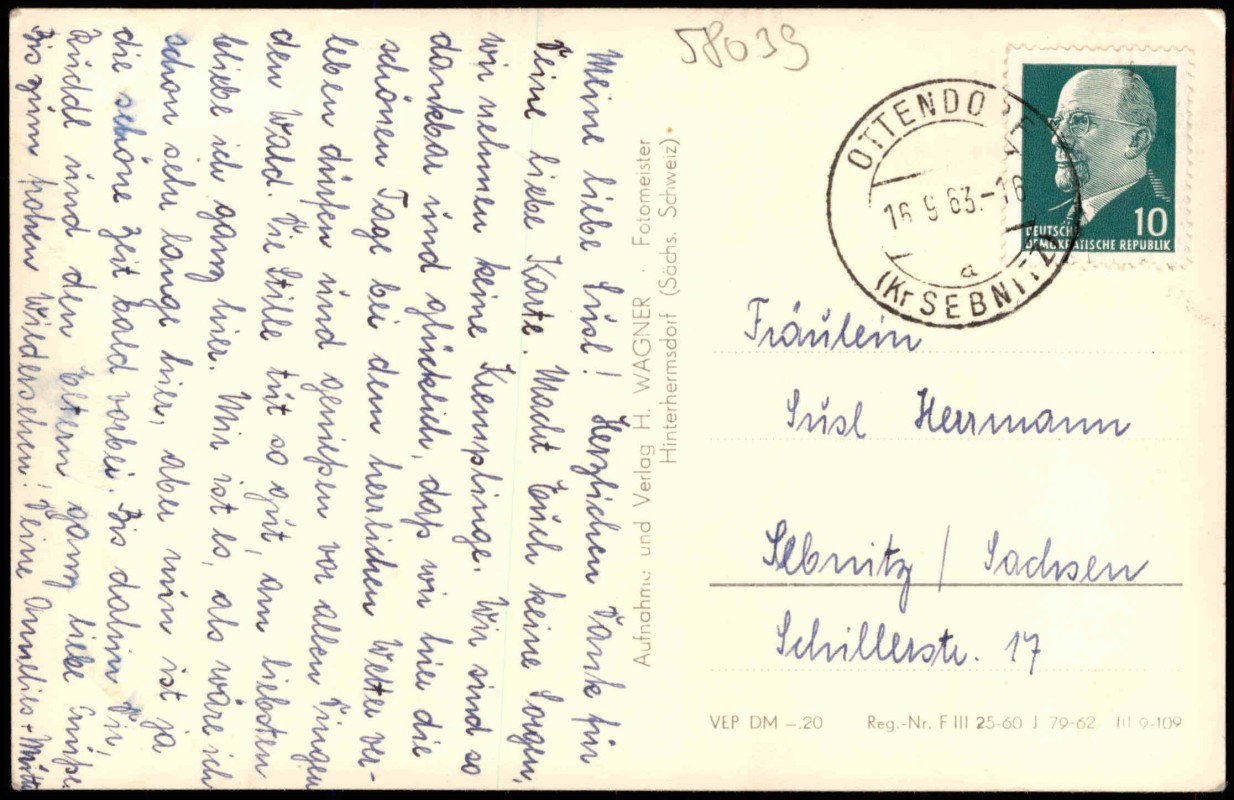 Meine liebe Susl! Herzlichen Dank für
Deine liebe Karte. Macht Euch keine Sorgen,
wir nehmen keine Klemplinge. Wir sind so
dankbar und glücklich, daß wir hier die
schönen Tage bei dem herrlichen Wetter ver-
leben dürfen und genießen vor allen Dingen
den Wald. Die Stille tut so gut, am liebsten
bliebe ich ganz hier. Mir ist es, als wäre ich
schon sehr lange hier, aber nun ist ja
die schöne Zeit bald vorbei. Bis dahin Dir,
und den Eltern ganz liebe Grüße.
Bis zum frohen Wiedersehen! Deine Annelies + Mutti
Aufnahme und Verlag H. WAGNER · Fotomeister
Hinterhermsdorf (Sächs. Schweiz)
58039
OTTENDORF
16.9.63.-16
a
(Kr SEBNITZ)
10
DEUTSCHE
DEMOKRATISCHE REPUBLIK
Fräulein
Susl Herrmann
Sebnitz / Sachsen
Schillerstr. 17
VEP DM –.20 Reg.-Nr. F III 25-60 J 79-62 9-109